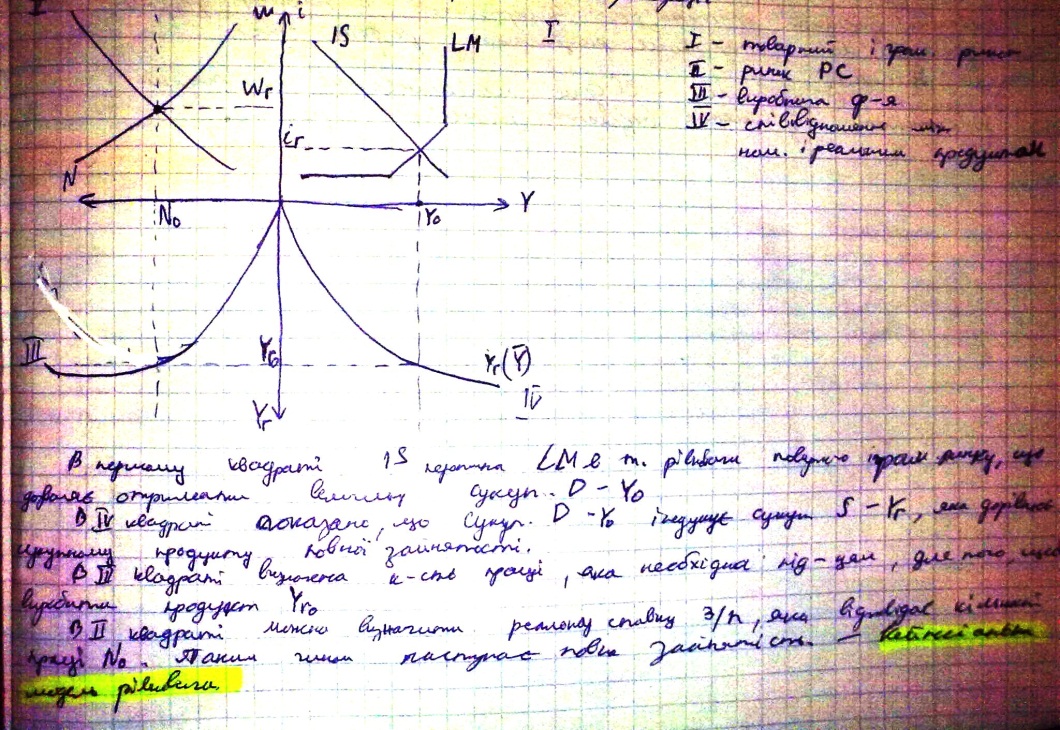 I
w i
IS
LM
I
I – товарний і грош ринки
II – ринок РС
III – виробнича ф-я
IV – співвідношення між
ном. і реальним продуктом
Wr
ir
N
N₀
Y₀
Y
III
Y₀
Yr(Y̅)
IV
Yr
В першому квадраті IS перетина LM в т. рівноваги товарного і грош ринку, що
дозволяє отримати величину сукуп. D – Y₀
В IV квадраті показано, що сукуп. D – Y₀ індукує сукуп S – Yr, яка дорівнює
сукупному продукту повної зайнятості.
В III квадраті визначена к-сть праці, яка необхідна під-цям, для того, щоб
виробити продукт Yr₀
В II квадраті можна визначити реальну ставку З/п, яка відповідає кількості
праці N₀. Таким чином наступає повна зайнятість. – кейнсіанська
модель рівноваги.